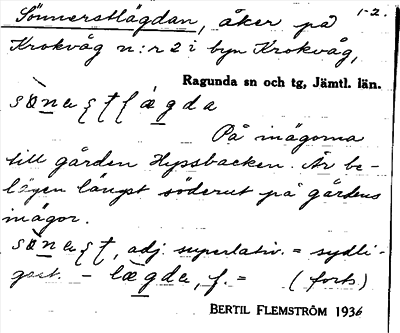 Sönnerstlägdan, åker på 1-2.
Krokvåg n:r 2 i byn Krokvåg,
Ragunda sn och tg, Jämtl. län.
På inägorna
till gården Hyssbacken. Är be-
lägen längst söderut på gårdens
inägor.
adj. superlativ. = sydli-
gast. - lægda, f. = (forts)
BERTIL FLEMSTRÖM 1936